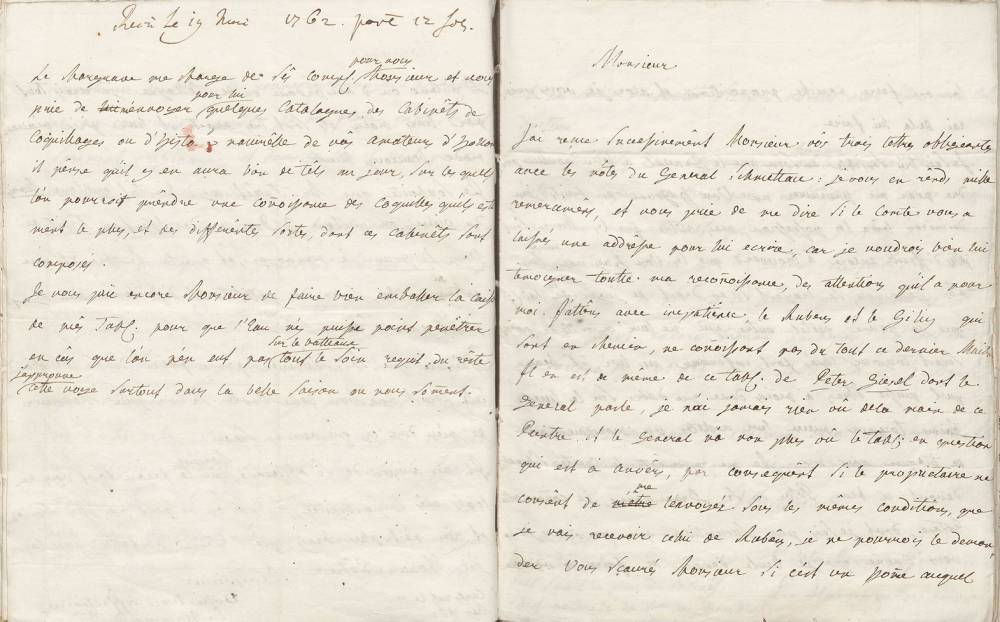 Recu Le 19 Mai 1762. porte 12 sols.
Le Margrave me charge de Ses compl. pour vous Monsieur et vous
prie de m'envoyer pour lui quelques Catalogues des Cabinêts de
Coquillages ou d'histo naturêlle de vos amateur
il pênse qu'il y en aura bien de têls au jour, Sur lesquels
l'ón pourroit prêndre une conoissance des Coquilles qui est
ment le plus, et des differêntes Sortes, dont ces Cabinêts Sont
composés.
Je vous prie encore Monsieur de faire bien emballer la caisse
de mês Tabl. pour que l'Eau n'ÿ puisse point penêtrer
en câs que l'ón n'en eut pas sur le batteau tout le Soin requis, du rêste
j'approuve cette voye Surtout dans la belle Saison ou nous Sôment.
Monsieur
J'ai recue Successivement Monsieur vos trois lettres obligeantes
avec les nôtes du General Schmettau: je vous en rênds mille
remercimêns, et vous prie de me dire Si le Comte vous a
laissés une addrêsse pour lui ecrire, car je voudrois bien lui
temoigner toutte ma reconoissance, des attentions qu'il a pour
moi. J'attêns avec impatience le Rubens et le qui
Sont en chemin, ne conoissant pas du tout ce dernier Maitre
Il en est de même de ce tabl. de Peter dont le
General parle, je n'ai jamais rien vû de la main de ce
Peintre, et le General n'a non plus vû le tabl: en question
qui est à anvêrs, par consequênt Si le proprietaire ne
consênt de me l'envoyer Sous les mêmes conditions, que
je vais recevoir celui de Rubêns, je ne pourrois le deman,
der Vous Sçaurés Monsieur Si c'ést un home auquel